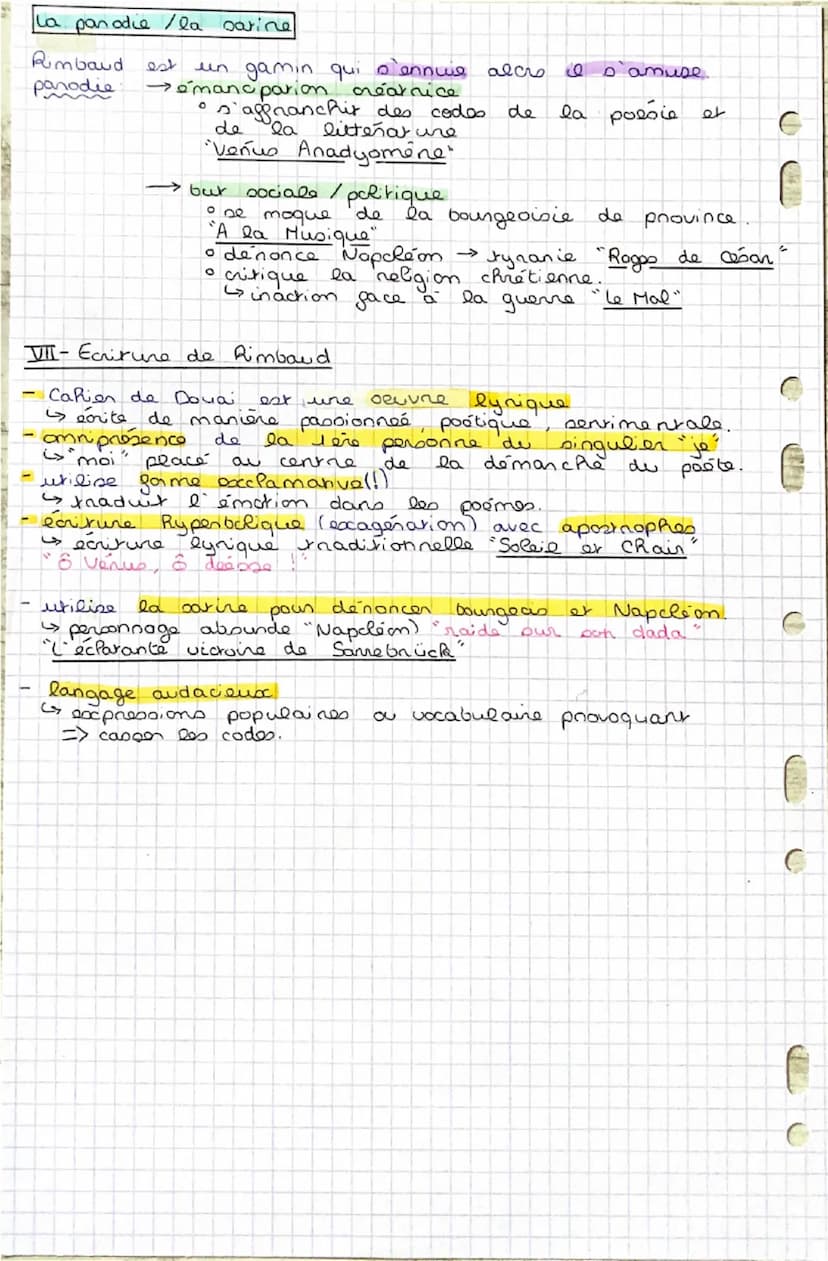 La parodie / la satire
Rimbaud est un gamin qui s'ennuie alors il s'amuse.
parodie → émancipation créatrice
° s'affranchir des codes de la poésie et
de la littérature
"Vénus Anadyomène"
→ but sociale / politique
° se moque de la bourgeoisie de province.
"A la Musique"
° dénonce Napoléon → tyranie "Rages de César"
° critique la religion chrétienne.
↳ inaction face à la guerre "Le Mal"
VII- Ecriture de Rimbaud
- Cahier de Douai est une oeuvre lyrique
↳ écrite de manière passionneé, poétique, sentimentale.
- omniprésence de la 1ère personne du singulier "je"
↳ "moi" placé au centre de la démarche du poète.
- utilise forme exclamative (!)
↳ traduit l'émotion dans les poèmes.
- écriture hyperbolique (exagération) avec apostrophes
↳ écriture lyrique traditionnelle "Soleil et Chair"
"Ô Vénus, ô déesse !"
- utilise la satire pour dénoncer bourgeois et Napoléon.
↳ personnage absurde "Napoléon) "raide sur son dada"
"L'éclatante victoire de Sarrebrück"
- langage audacieux
↳ expressions populaires ou vocabulaire provoquant
=> casser les codes.